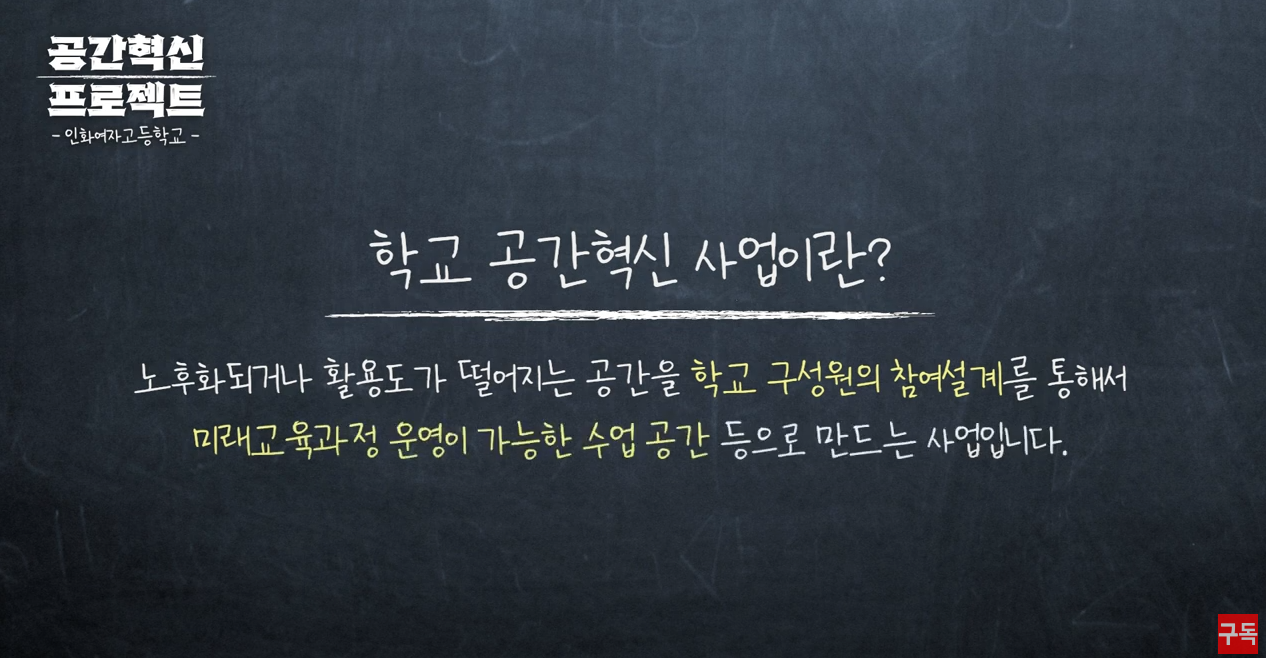 공간혁신
프로젝트
- 인화여자고등학교 -
학교 공간혁신 사업이란?
노후화되거나 활용도가 떨어지는 공간을 학교 구성원의 참여설계를 통해서
미래교육과정 운영이 가능한 수업 공간 등으로 만드는 사업입니다.
구독